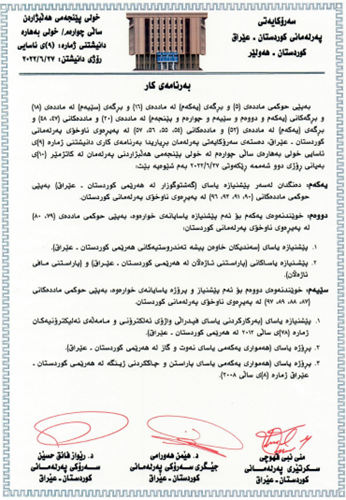 سەرۆکایەتی
پەرلەمانی کوردستان - عێراق
کوردستان - هەولێر
خولی پێنجەمی هەڵبژاردن
ساڵی چوارەم / خولی بەهارە
دانیشتنی ژمارە: (٩)ی ئاسایی
ڕۆژی دانیشتن: ٢٠٢٢/٦/٢٧
بەرنامەی کار
بەپێی حوکمی ماددەی (٥) و بڕگەی (یەکەم) لە ماددەی (١٦) و بڕگەی (سێیەم) لە ماددەی (١٨)
و بڕگەکانی (یەکەم و دووەم و سێیەم و چوارەم و پێنجەم) لە ماددەی (٢٠) و ماددەکانی (٤٧، ٤٨)
و بڕگەی (یەکەم) لە ماددەی (٥٢) و ماددەکانی (٥٤، ٥٥، ٥٦، ٥٧) لە پەیڕەوی ناوخۆی پەرلەمانی
کوردستان - عێراق، دەستەی سەرۆکایەتی پەرلەمان بڕیاریدا بەرنامەی کاری دانیشتنی ژمارە (٩)ی
ئاسایی خولی بەهارەی ساڵی چوارەم لە خولی پێنجەمی هەڵبژاردنی پەرلەمان لە کاتژمێر (١٠)ی
بەیانی ڕۆژی دوو شەممە ڕێکەوتی ٢٠٢٢/٦/٢٧ بەم شێوەیە بێت:
یەکەم: دەنگدان لەسەر پێشنیازە یاسای (گەشتوگوزار لە هەرێمی کوردستان - عێراق)، بەپێی حوکمی ماددەکانی
(٩٠، ٩١، ٩٢، ٩٦) لە پەیڕەوی ناوخۆی پەرلەمانی کوردستان - عێراق.
دووەم: خوێندنەوەی یەکەم بۆ ئەم پێشنیازە یاسایانەی خوارەوە، بەپێی حوکمی ماددەی (٧٩، ٨٠)
لە پەیڕەوی ناوخۆی پەرلەمانی کوردستان - عێراق.
١. پێشنیازە یاسای (سەندیکای خاوەن پیشە تەندروستیەکانی هەرێمی کوردستان - عێراق).
٢. پێشنیازە یاساکانی (پاراستنی ئاژەڵان لە هەرێمی کوردستان - عێراق) و (پاراستنی مافی
ئاژەڵان).
سێیەم: خوێندنەوەی دووەم بۆ ئەم پێشنیاز و پڕۆژە یاسایانەی خوارەوە، بەپێی حوکمی ماددەکانی
(٨٧، ٨٨، ٨٩، ٩٧) لە پەیڕەوی ناوخۆی پەرلەمانی کوردستان - عێراق.
١. پێشنیازە یاسای (بەکارکردنی یاسای فیدراڵی واژۆی ئەلکترۆنی و مامەڵەی ئەلیکترۆنیەکان
ژمارە (٧٨)ی ساڵی ٢٠١٢ لە هەرێمی کوردستان - عێراق).
٢. پڕۆژە یاسای (هەمواری یەکەمی یاسای نەوت و گاز لە هەرێمی کوردستان - عێراق).
٣. پڕۆژە یاسای (هەمواری یەکەمی یاسای پاراستن و چاککردنی ژینگە لە هەرێمی کوردستان -
عێراق ژمارە (٨)ی ساڵی ٢٠٠٨).
د. ڕێواز فائق حسێن
سەرۆکی پەرلەمانی
کوردستان - عێراق
د. هێمن هەورامی
جێگری سەرۆکی پەرلەمانی
کوردستان - عێراق
منی نبی قهوچی
سکرتێری پەرلەمانی
کوردستان - عێراق